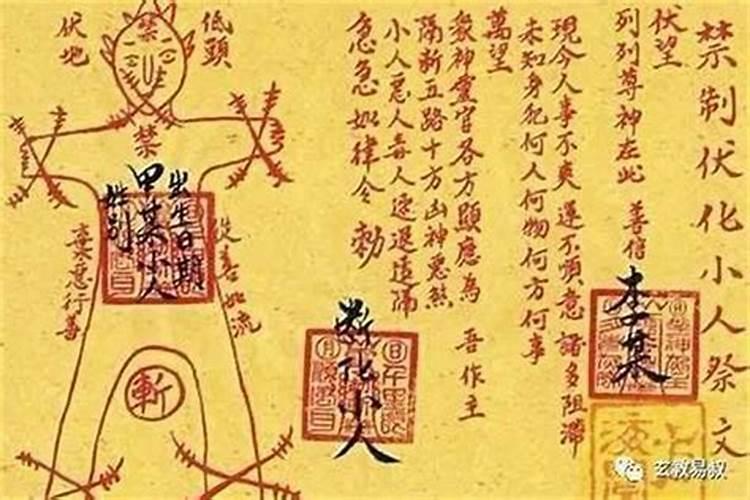 禁制伏化小人祭文
伏望
列列尊神在此 善信
李某
現今人事不爽運不順意諸多阻滯
未知身犯何人何物何方何事
萬望
眾神靈官各方顯應為 吾作主
隔斷五路十方凶神惡煞
小人惡人毒人速退遠隔
急急如律令勅
斷化小人
低頭
伏地
禁
禁
出生日期
甲某小人
性別
從善如流
棄惡行善
斬
玄教易叔